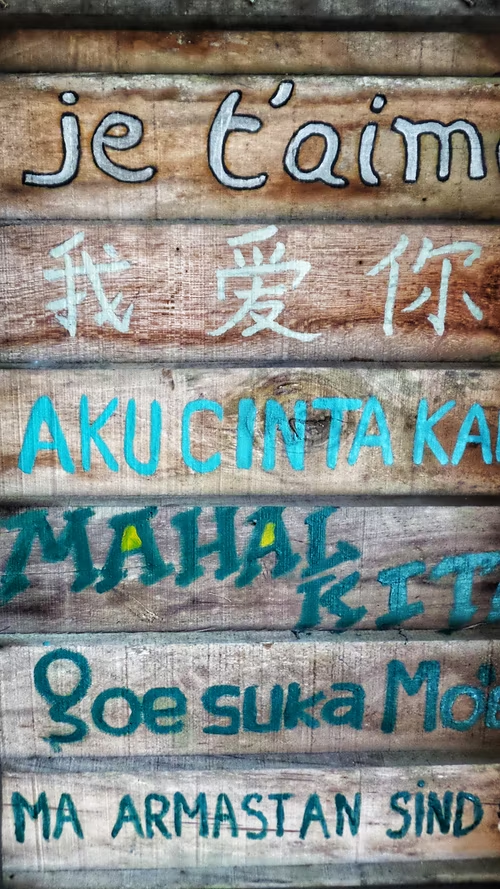 je t'aime
我爱你
AKU CINTA KA
MAHAL
KITA
goe suka Mo
MA ARMASTAN SiND